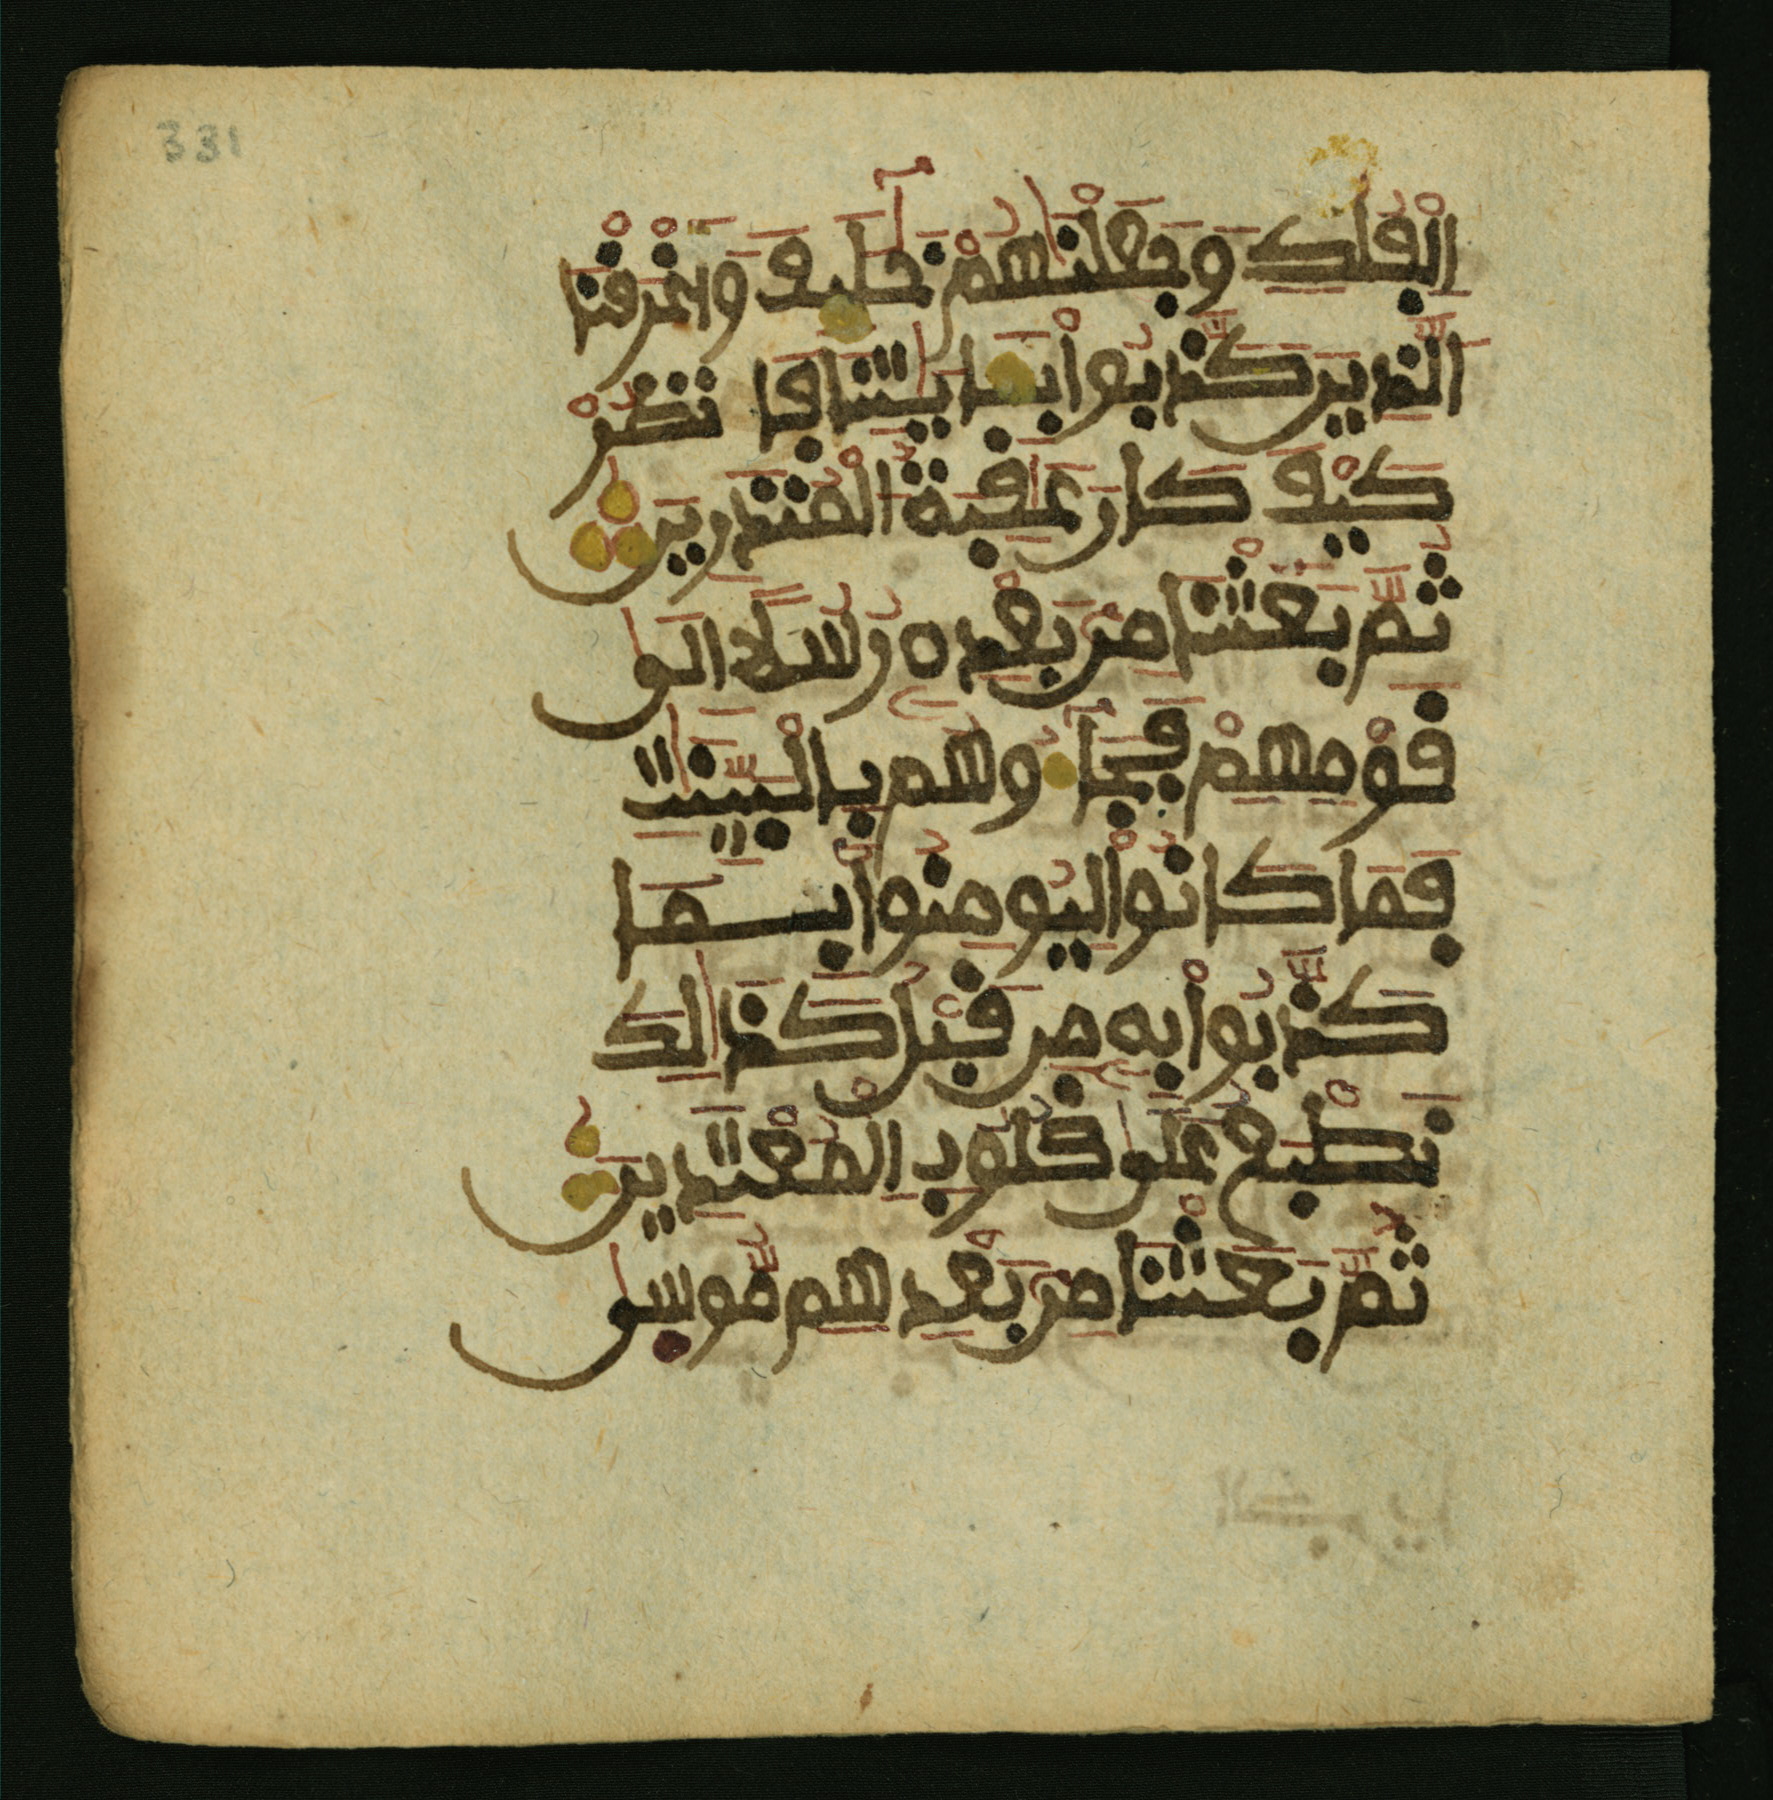 331
الْفُلْكِ وَجَعَلْنَٰهُمْ خَلَٰٓئِفَ وَأَغْرَقْنَا
الَّذِينَ كَذَّبُواْ بِـَٔايَٰتِنَا فَانظُرْ
كَيْفَ كَانَ عَٰقِبَةُ الْمُنذَرِينَ
ثُمَّ بَعَثْنَا مِنۢ بَعْدِهِ رُسُلًا إِلَىٰ
قَوْمِهِمْ فَجَآءُوهُم بِالْبَيِّنَٰتِ
فَمَا كَانُواْ لِيُومِنُواْ بِمَا
كَذَّبُواْ بِهِ مِن قَبْلُ كَذَٰلِكَ
نَطْبَعُ عَلَىٰ قُلُوبِ الْمُعْتَدِينَ
ثُمَّ بَعَثْنَا مِنۢ بَعْدِهِم مُّوسَىٰ